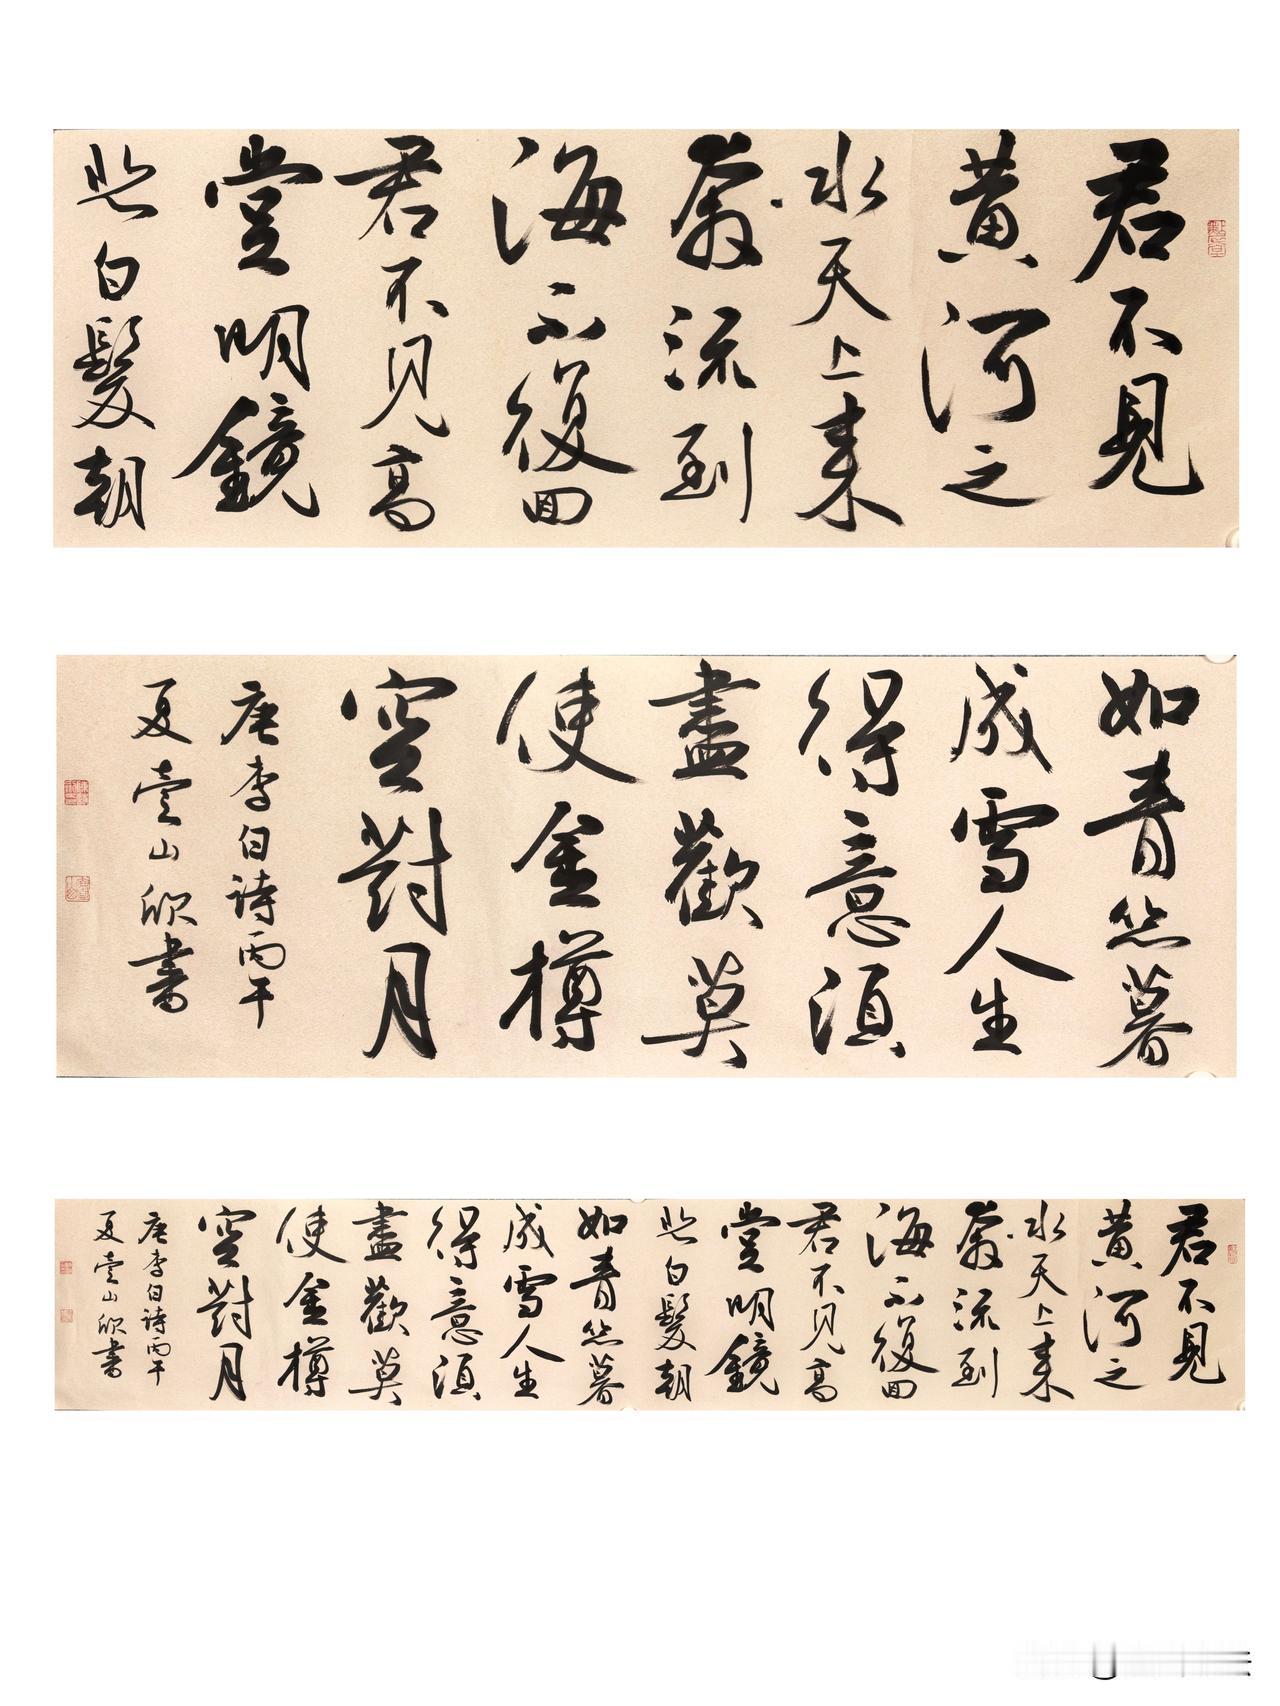 君不見
黄河之
水天上来
奔流到
海不復回
君不见高
堂明鏡
悲白髮朝
如青丝暮
成雪人生
得意須
盡歡莫
使金樽
空對月
唐李白詩丙午
夏山欣書
君不見
黄河之
水天上来
奔流到
海不復回
君不见高
堂明鏡
悲白髮朝
如青丝暮
成雪人生
得意須
盡歡莫
使金樽
空對月
唐李白詩丙午
夏山欣書